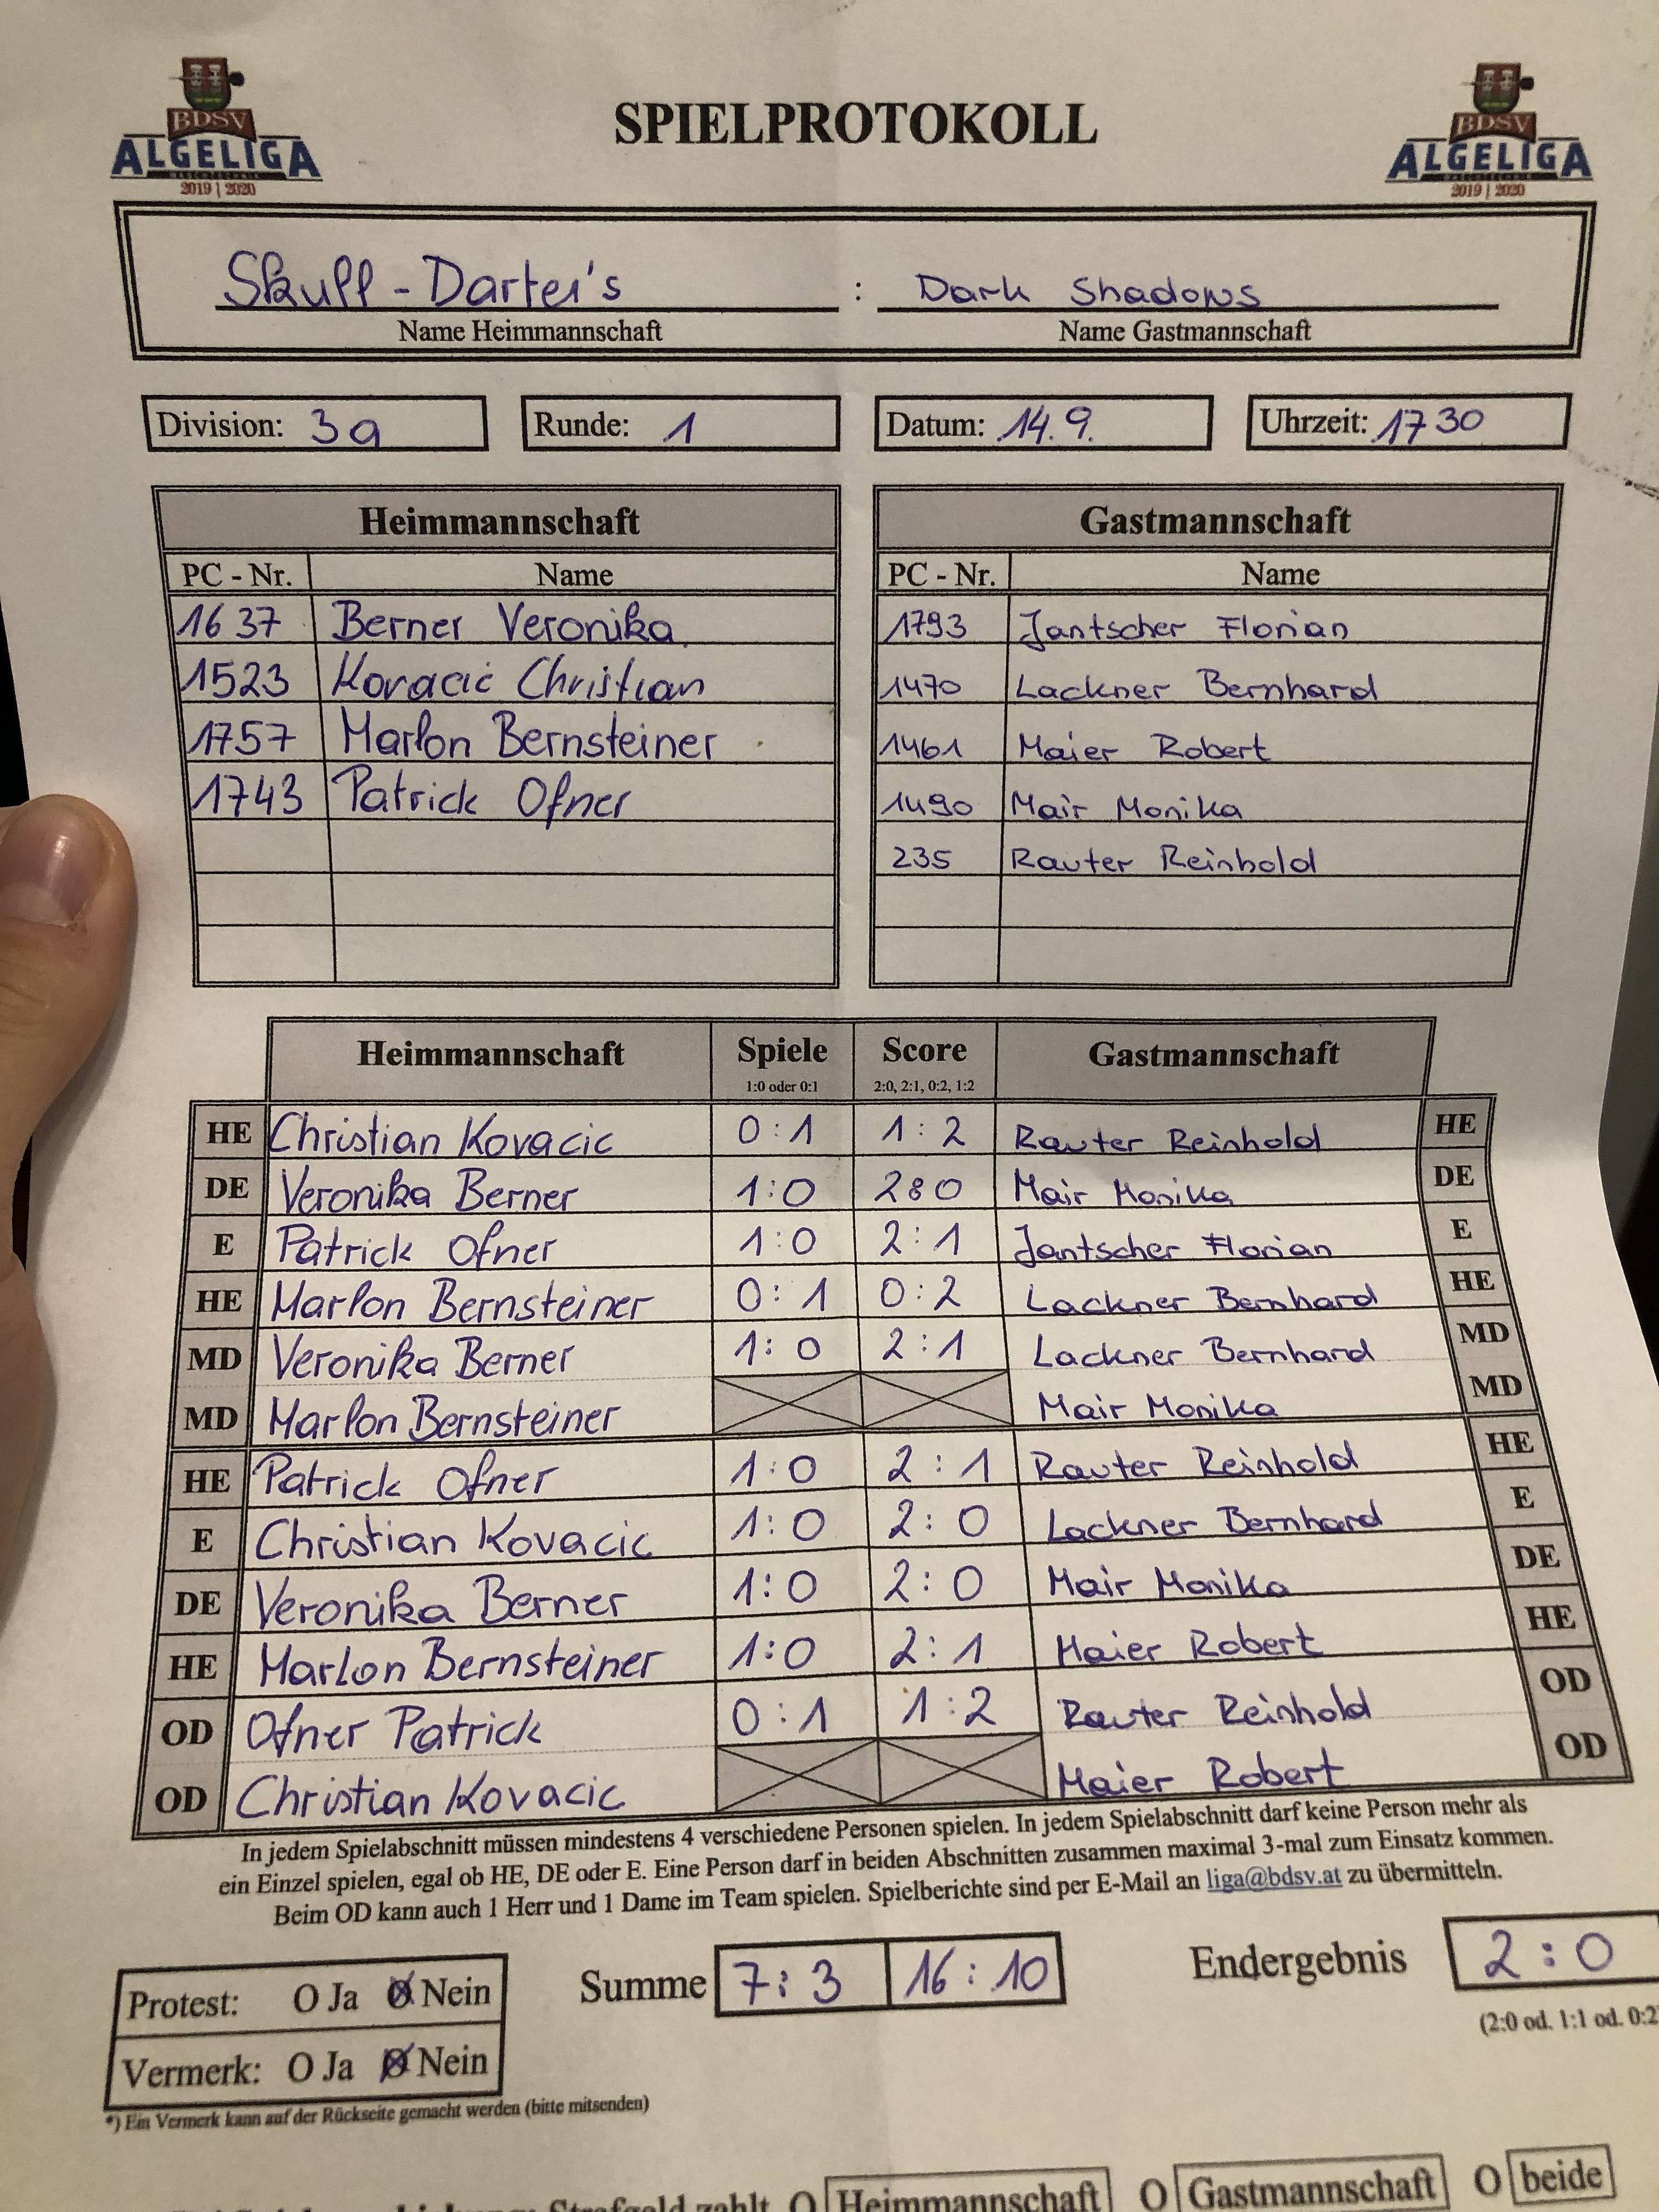 BDSV
ALGELIGA
2019 | 2020
SPIELPROTOKOLL
BDSV
ALGELIGA
2019 | 2020
Skull - Darter's : Dark Shadows
Name Heimmannschaft Name Gastmannschaft
Division: 3a Runde: 1 Datum: 14.9. Uhrzeit: 17 30
Heimmannschaft
PC - Nr. Name
1637 Berner Veronika
1523 Kovacic Christian
1757 Marlon Bernsteiner
1743 Patrick Ofner
Gastmannschaft
PC - Nr. Name
1793 Jantscher Florian
1470 Lackner Bernhard
1461 Maier Robert
1490 Mair Monika
235 Rauter Reinhold
Heimmannschaft Spiele Score Gastmannschaft
1:0 oder 0:1 2:0, 2:1, 0:2, 1:2
HE Christian Kovacic 0:1 1:2 Rauter Reinhold HE
DE Veronika Berner 1:0 2:0 Mair Monika DE
E Patrick Ofner 1:0 2:1 Jantscher Florian E
HE Marlon Bernsteiner 0:1 0:2 Lackner Bernhard HE
MD Veronika Berner 1:0 2:1 Lackner Bernhard MD
MD Marlon Bernsteiner Mair Monika MD
HE Patrick Ofner 1:0 2:1 Rauter Reinhold HE
E Christian Kovacic 1:0 2:0 Lackner Bernhard E
DE Veronika Berner 1:0 2:0 Mair Monika DE
HE Marlon Bernsteiner 1:0 2:1 Maier Robert HE
OD Ofner Patrick 0:1 1:2 Rauter Reinhold OD
OD Christian Kovacic Maier Robert OD
In jedem Spielabschnitt müssen mindestens 4 verschiedene Personen spielen. In jedem Spielabschnitt darf keine Person mehr als
ein Einzel spielen, egal ob HE, DE oder E. Eine Person darf in beiden Abschnitten zusammen maximal 3-mal zum Einsatz kommen.
Beim OD kann auch 1 Herr und 1 Dame im Team spielen. Spielberichte sind per E-Mail an liga@bdsv.at zu übermitteln.
Protest: O Ja O Nein Summe 7:3 16:10 Endergebnis 2:0
Vermerk: O Ja O Nein (2:0 od. 1:1 od. 0:2
*) Ein Vermerk kann auf der Rückseite gemacht werden (bitte mitsenden)
Strafgeld zahlt O Heimmannschaft O Gastmannschaft O beide